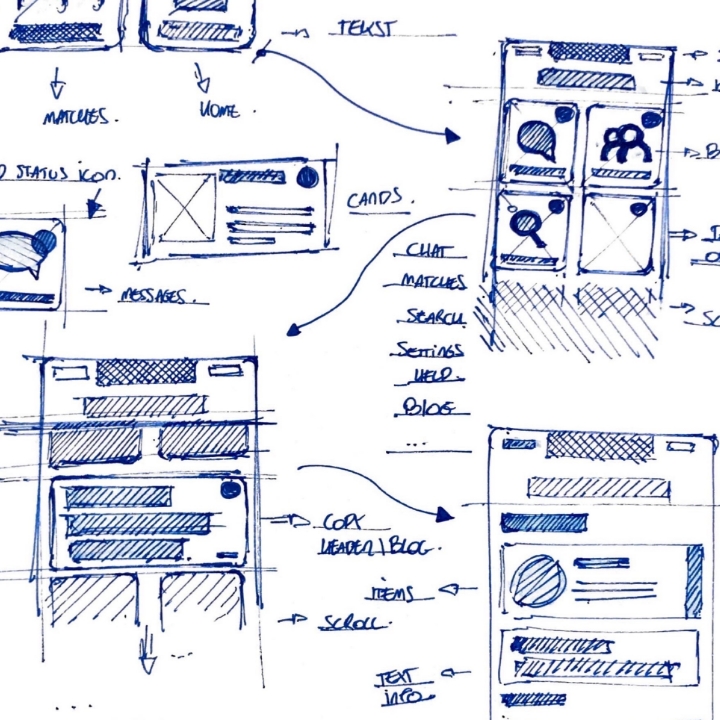 TEKST
MATCHES.
HOME.
STATUS ICON.
CARDS.
MESSAGES.
CHAT
MATCHES
SEARCH
SETTINGS
HELP.
BLOG
...
COPY
HEADER/BLOG.
ITEMS
SCROLL.
...
TEXT
INFO
...